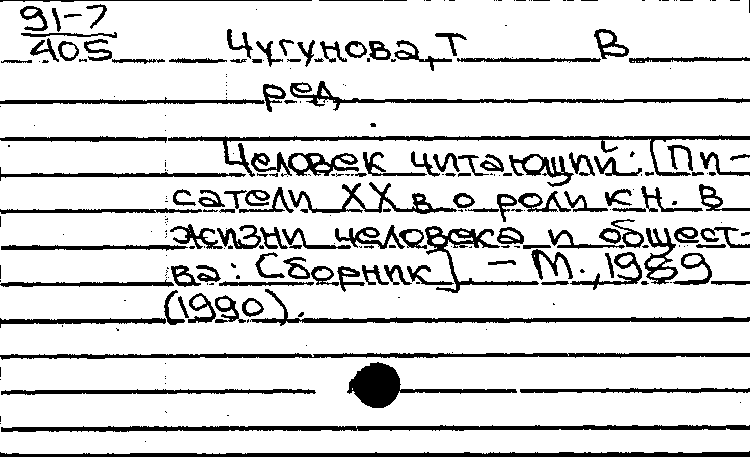 91-7
405 Чугунова, Т В
ред.
Человек читающий: [Пи-
сатели XX в о роли кн. в
жизни человека и общест-
ва: Сборник]. - М., 1989
(1990).